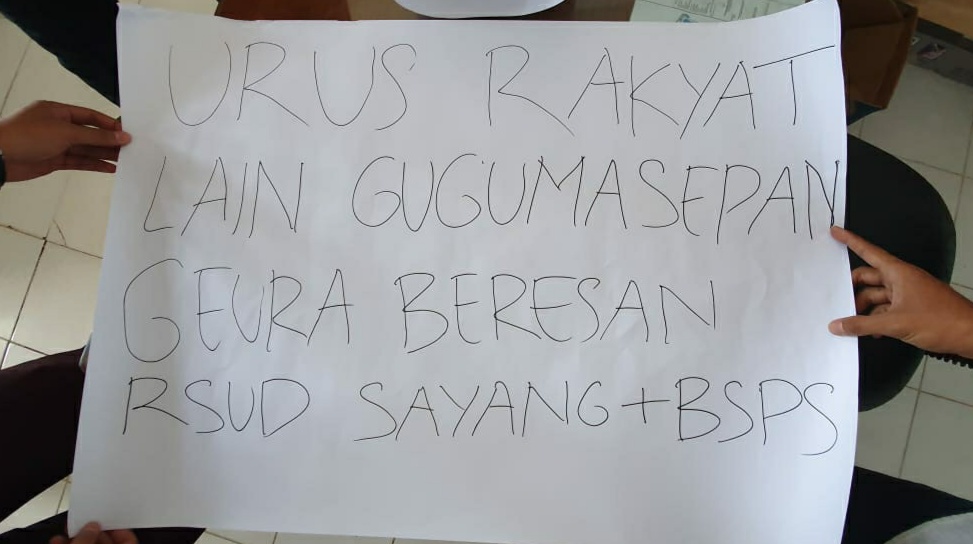 URUS RAKYAT
LAIN GUGUMASEPAN
GEURA BERESAN
RSUD SAYANG+BSPS